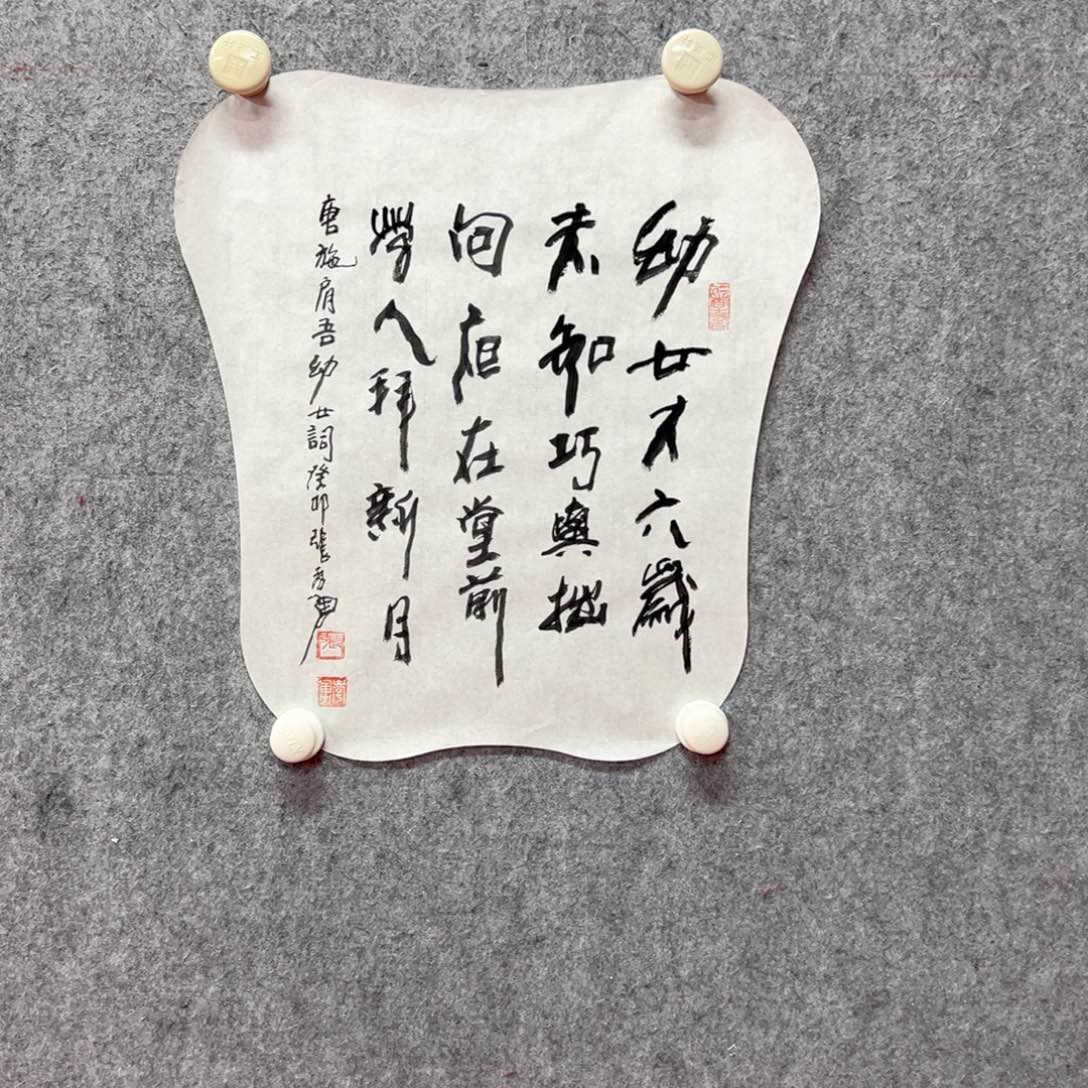 幼女才六歲
未知巧與拙
向夜在堂前
學人拜新月
唐施肩吾幼女詞癸卯張